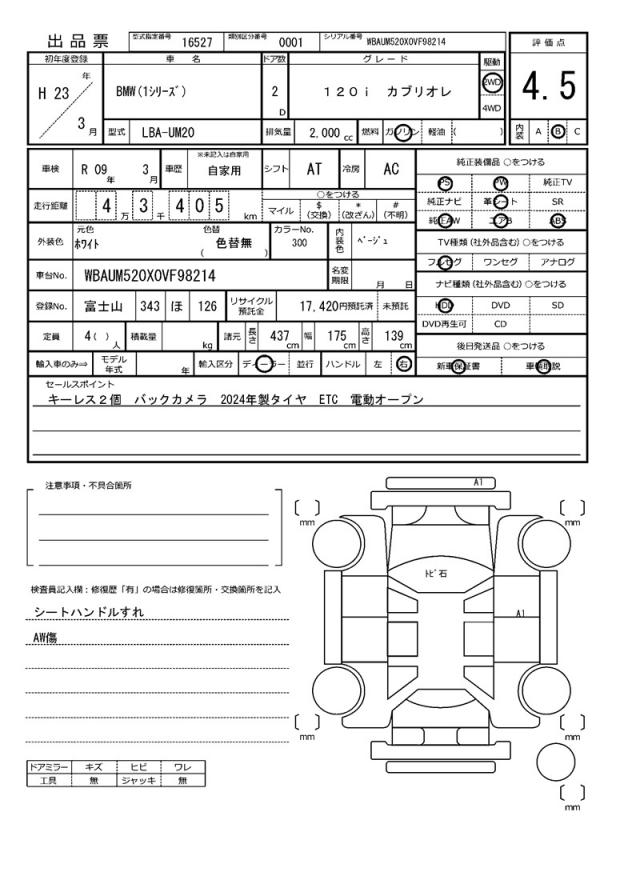 出品票 型式指定番号 16527 類別区分番号 0001 シリアル番号 WBAUM520X0VF98214 評価点
初年度登録 車名 ドア数 グレード 駆動
H 23 年 BMW(1シリーズ) 2 D 120i カブリオレ 2WD 4.5
4WD
3 月 型式 LBA-UM20 排気量 2,000 cc 燃料 ガソリン 軽油 ( ) 内装 A B C
※未記入は自家用
車検 R 09 年 3 月 車歴 自家用 シフト AT 冷房 AC 純正装備品 ○をつける
PS PW 純正TV
走行距離 4 万 3 千 405 km ○をつける 純正ナビ 革シート SR
マイル $(交換) *(改ざん) #(不明) 純正AW エアB ABS
外装色 元色 ホワイト 色替 ( 色替無 ) カラーNo. 300 内装色 ベージュ TV種類(社外品含む)○をつける
フルセグ ワンセグ アナログ
車台No. WBAUM520X0VF98214 名変期限 月 日 ナビ種類(社外品含む)○をつける
登録No. 富士山 343 ほ 126 リサイクル預託金 17,420円預託済 未預託 HDD DVD SD
DVD再生可 CD
定員 4( ) 人 積載量 kg 諸元 長さ 437 cm 幅 175 cm 高さ 139 cm 後日発送品 ○をつける
輸入車のみ⇒ モデル年式 年 輸入区分 ディーラー 並行 ハンドル 左 右 新車保証書 車輌取説
セールスポイント
キーレス2個 バックカメラ 2024年製タイヤ ETC 電動オープン
注意事項・不具合箇所
A1
mm mm
トビ石
検査員記入欄:修復歴「有」の場合は修復箇所・交換箇所を記入
シートハンドルすれ
A1
AW傷
mm mm
ドアミラー キズ ヒビ ワレ
工具 無 ジャッキ 無
mm